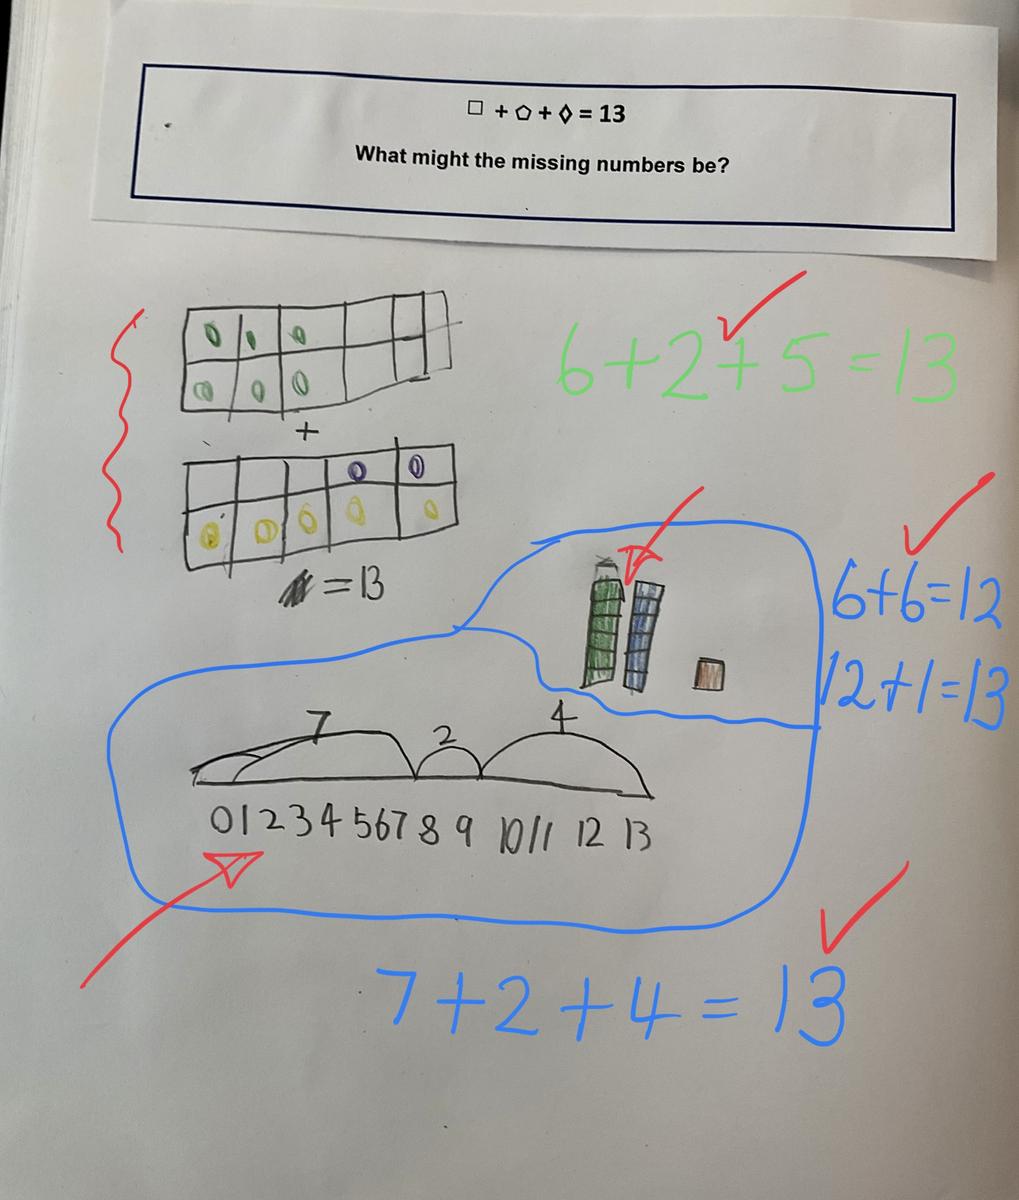 □ + ⬠ + ◊ = 13
What might the missing numbers be?
6+2+5=13
+
=13
6+6=12
12+1=13
7 2 4
0 1 2 3 4 5 6 7 8 9 10 11 12 13
7+2+4=13